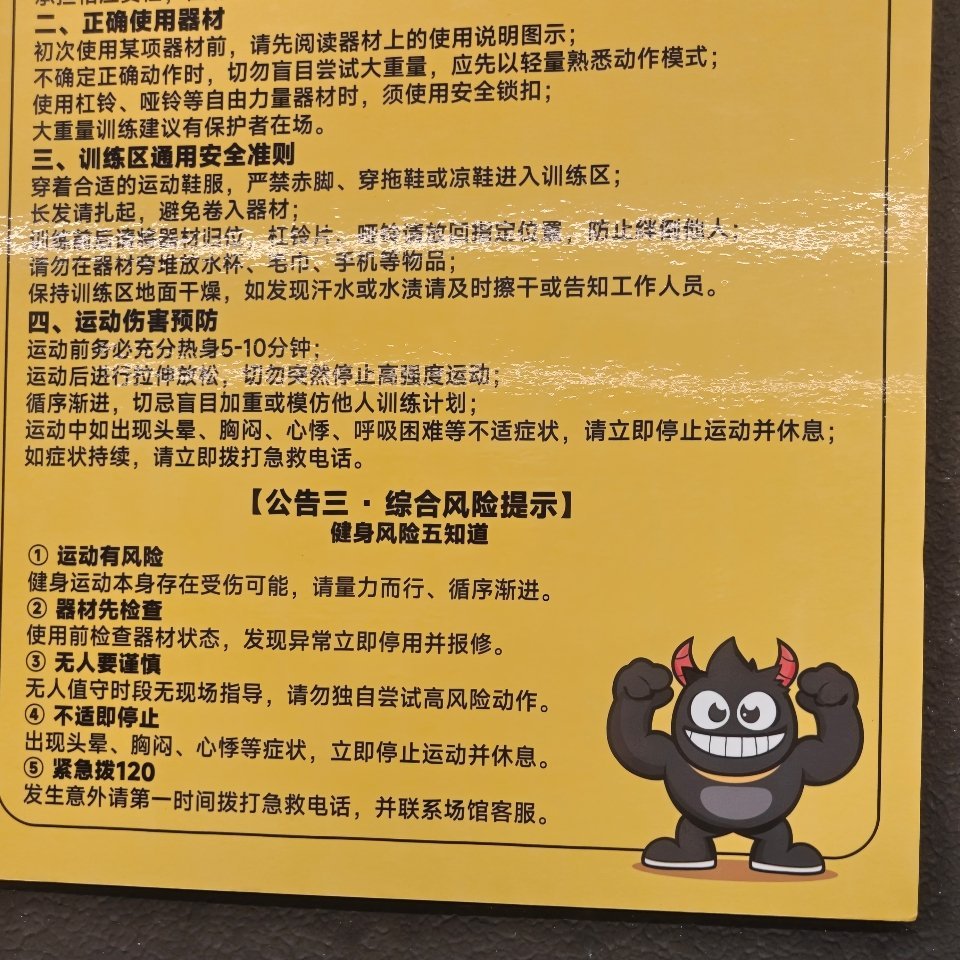 二、正确使用器材
初次使用某项器材前，请先阅读器材上的使用说明图示；
不确定正确动作时，切勿盲目尝试大重量，应先以轻量熟悉动作模式；
使用杠铃、哑铃等自由力量器材时，须使用安全锁扣；
大重量训练建议有保护者在场。
三、训练区通用安全准则
穿着合适的运动鞋服，严禁赤脚、穿拖鞋或凉鞋进入训练区；
长发请扎起，避免卷入器材；
器材归位，杠铃片、哑铃请放回指定位置，防止绊倒他人；
请勿在器材旁堆放水杯、毛巾、手机等物品；
保持训练区地面干燥，如发现汗水或水渍请及时擦干或告知工作人员。
四、运动伤害预防
运动前务必充分热身5-10分钟；
运动后进行拉伸放松，切勿突然停止高强度运动；
循序渐进，切忌盲目加重或模仿他人训练计划；
运动中如出现头晕、胸闷、心悸、呼吸困难等不适症状，请立即停止运动并休息；
如症状持续，请立即拨打急救电话。
【公告三·综合风险提示】
健身风险五知道
① 运动有风险
健身运动本身存在受伤可能，请量力而行、循序渐进。
② 器材先检查
使用前检查器材状态，发现异常立即停用并报修。
③ 无人要谨慎
无人值守时段无现场指导，请勿独自尝试高风险动作。
④ 不适即停止
出现头晕、胸闷、心悸等症状，立即停止运动并休息。
⑤ 紧急拨120
发生意外请第一时间拨打急救电话，并联系场馆客服。